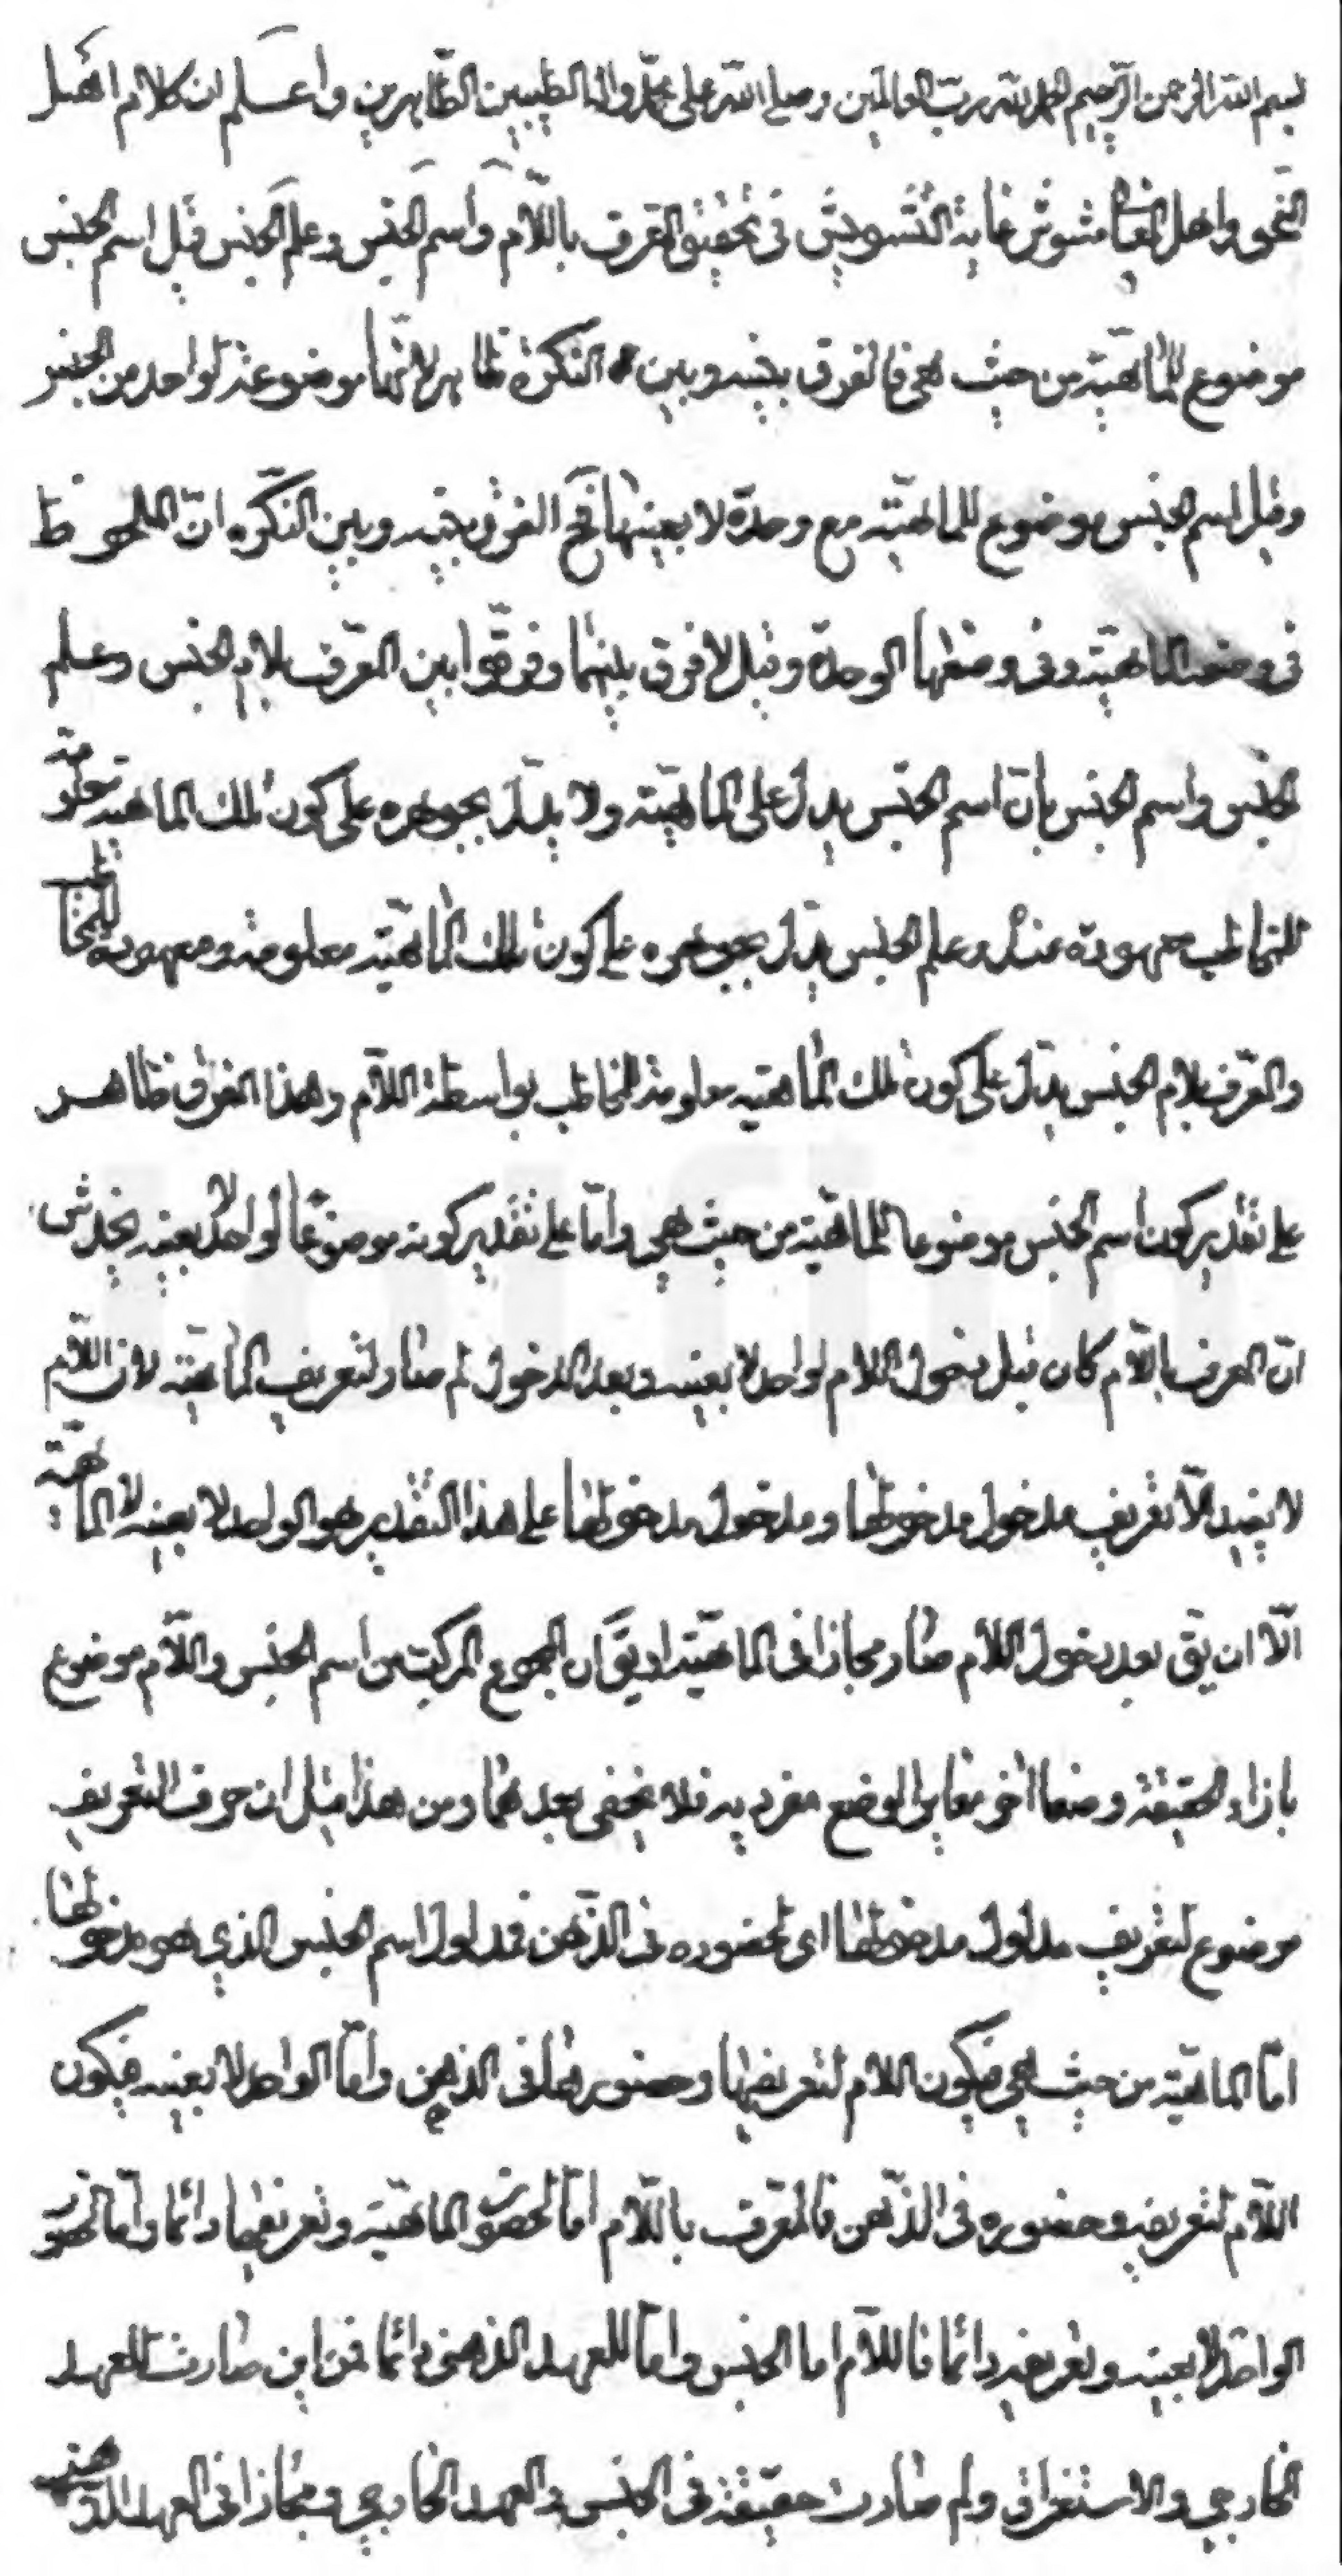 بسم الله الرحمن الرحيم الحمد لله رب العالمين وصلى الله على محمد واله الطيبين الطاهرين واعلم ان كلام اهل
النحو واهل المعانى مشوش غاية التشويش فى تحقيق المعرف باللام واسم الجنس وعلم الجنس قيل اسم الجنس
موضوع للماهية من حيث هى فالفرق بينه وبين النكرة ظاهر لانها موضوعة لواحد من الجنس
وقيل اسم الجنس موضوع للماهية مع وحدة لا بعينها فح الفرق بينه وبين النكره ان الملحوظ
فى وضعه الماهية وفى وضعها الوحدة وقيل لا فرق بينهما وفرقوا بين المعرف بلام الجنس وعلم
الجنس واسم الجنس بان اسم الجنس يدل على الماهية ولا يدل بجوهره على كون تلك الماهية معلومة
للمخاطب معهودة عنده وعلم الجنس يدل بجوهره على كون تلك الماهية معلومة ومعهودة للمخاطب
والمعرف بلام الجنس يدل على كون تلك الماهية معلومة للمخاطب بواسطة اللام وهذا الفرق ظاهر
على تقدير كون اسم الجنس موضوعا للماهية من حيث هى واما على تقدير كونه موضوعا لواحد لا بعينه يخدش
ان المعرف باللام كان قبل دخول اللام لواحد لا بعينه وبعد الدخول لم صار لتعريف الماهية لان اللام
لا يفيد الا تعريف مدخول مدخولها ومدخول مدخولها على هذا التقدير هو الواحد لا بعينه لا الماهية
الا ان يق بعد دخول اللام صار مجازا فى الماهية او يق ان المجموع المركب من اسم الجنس واللام موضوع
بازاء الحقيقة وضعا اخر مغاير الوضع مفرديه فلا يخفى بعدهما ومن هذا قيل ان حرف التعريف
موضوع لتعريف مدلول مدخولها اى لحضوره فى الذهن فمدلول اسم الجنس الذي هو مدخولها
اما الماهية من حيث هى فيكون اللام لتعريفها وحضورها فى الذهن واما الواحد لا بعينه فيكون
اللام لتعريفه وحضوره فى الذهن فالمعرف باللام اما لحضور الماهية وتعريفها دائما واما لحضور
الواحد لا بعينه وتعريفه دائما فاللام اما الجنس واما للعهد الذهنى دائما فمن اين صارت للعهد
الخارجي والاستغراق ولم صارت حقيقة فى الجنس والعهد الخارجي ومجازا فى العهد الذهنى